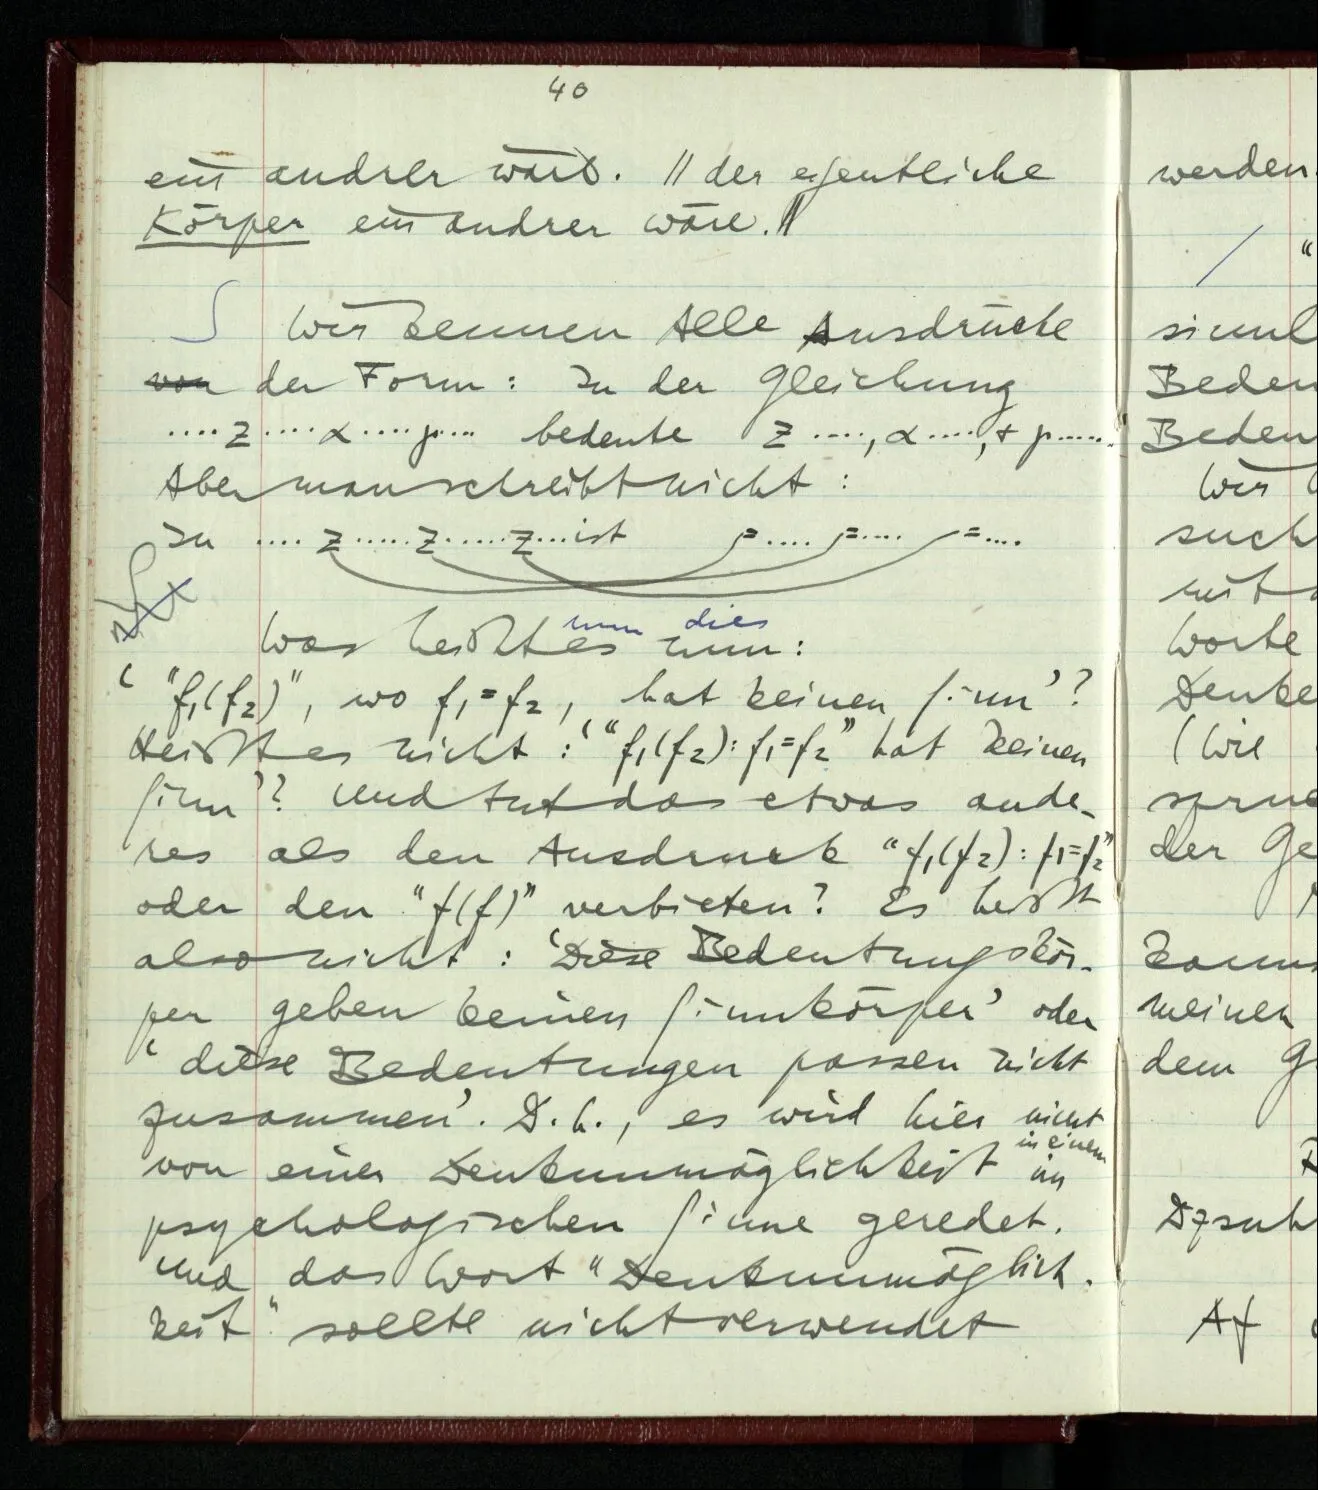 40
ein andrer wäre. || der eigentliche
Körper ein andrer wäre. ||
∫ Wir kennen Alle Ausdrücke
von der Form: In der Gleichung
....z....α....p.... bedeute z ....., α....., + p.......
Aber man schreibt nicht:
In ....z......z......z...ist p=.... p=.... p=....
nun dies
Was heißt es nun:
‘ “f₁(f₂)”, wo f₁=f₂, hat keinen Sinn’?
Heißt es nicht: ‘“f₁(f₂):f₁=f₂” hat keinen
Sinn’? Und tut das etwas ande-
res als den Ausdruck “f₁(f₂):f₁=f₂”
oder den “f(f)” verbieten? Es heißt
also nicht: ‘Diese Bedeutungskör-
per geben keinen Sinnkörper’ oder
‘diese Bedeutungen passen nicht
zusammen’. D.h., es wird hier nicht
in einem
von einer Denkunmöglichkeit im
psychologischen Sinne geredet.
Und das Wort “Denkunmöglich-
keit” sollte nicht verwendet
werden.
/ “
sinnl
Beden
Bedeu
Wir
such
mit
Worte
Denke
(Wie
spru
der Ge
kann
meinen
dem G
Af